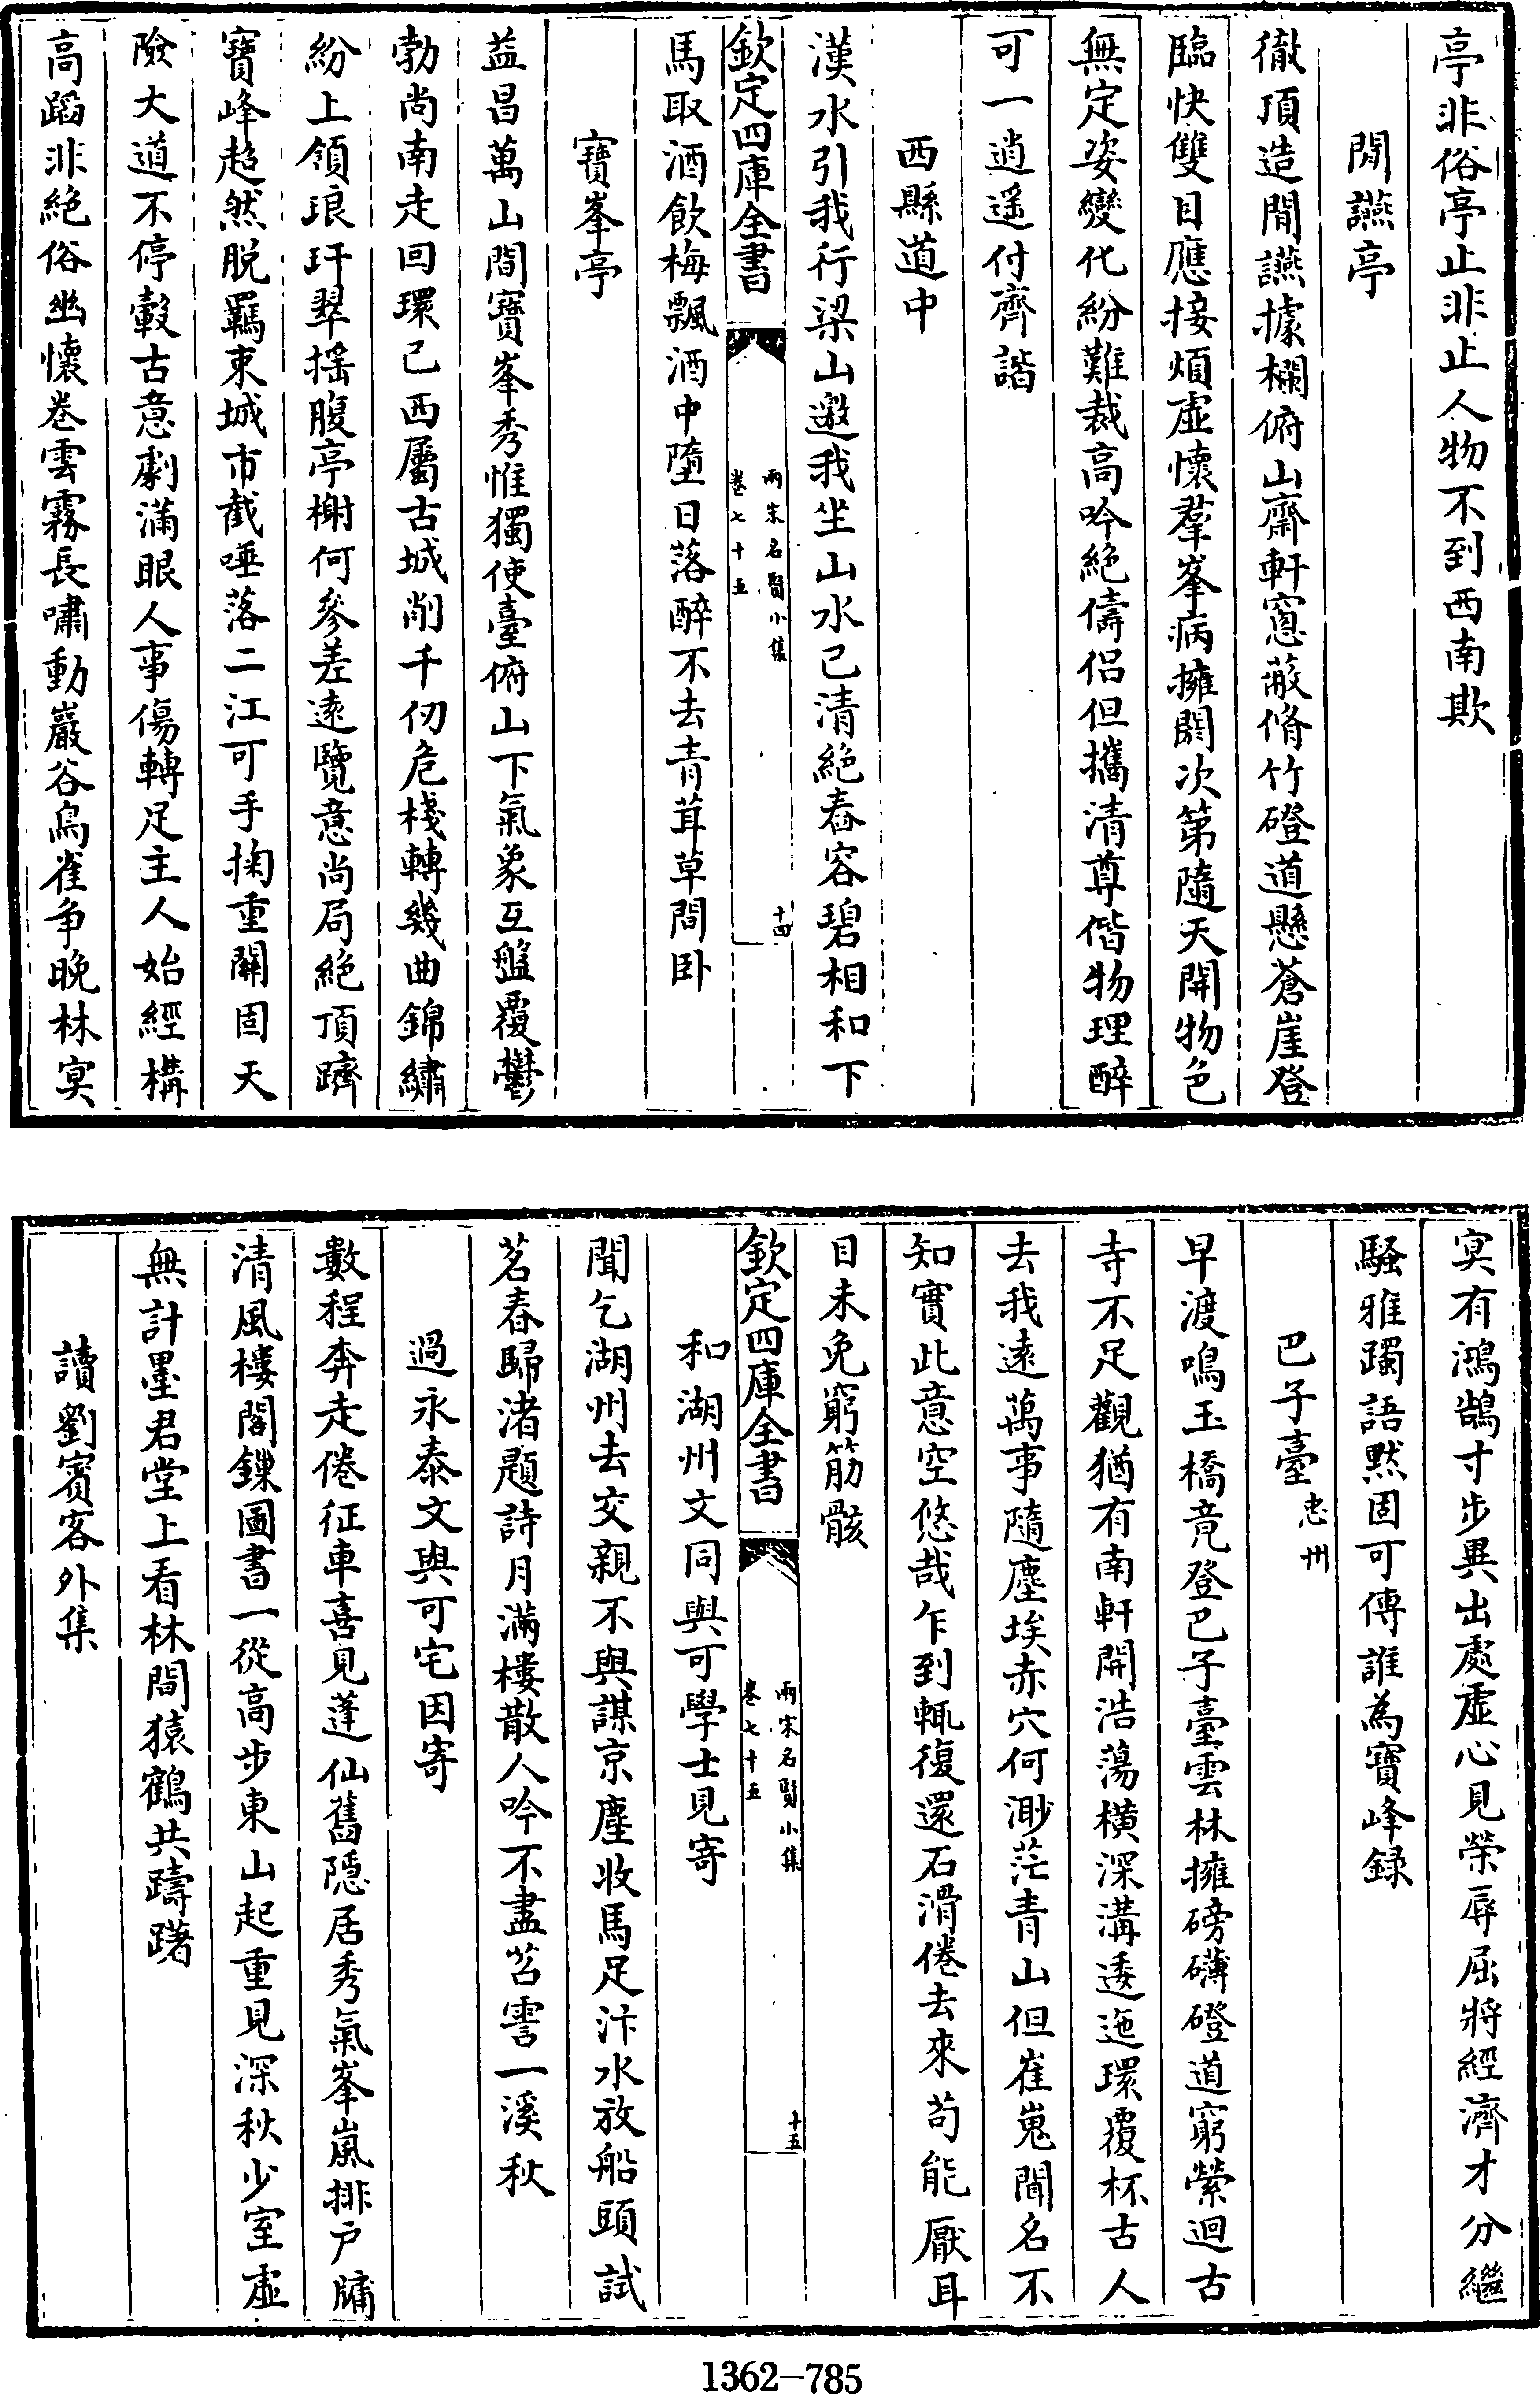 亭非俗亭止非止人物不到西南欺
閒讌亭
徹頂造閒讌據欄俯山齋軒窓蔽脩竹磴道懸蒼崖登
臨快雙目應接煩虛懷羣峯病擁閼次第隨天開物色
無定姿變化紛難裁高吟絶儔侣但攜清尊偕物理醉
可一逍遥付齊諧
西縣道中
漢水引我行梁山邀我坐山水已清絶春容碧相和下
欽定四庫全書
兩宋名賢小集
卷七十五
十四
馬取酒飲梅飄酒中墮日落醉不去青茸草間卧
寶峯亭
益昌萬山間寶峯秀惟獨使臺俯山下氣象互盤覆鬱
勃尚南走回環已西屬古城削千仞危棧轉幾曲錦繡
紛上領琅玕翠摇腹亭榭何參差逺覽意尚局絶頂躋
寶峰超然脱羈束城市截唾落二江可手掬重關固天
險大道不停轂古意劇滿眼人事傷轉足主人始經構
高蹈非絶俗幽懷卷雲霧長嘯動巖谷鳥雀争晚林冥
冥有鴻鵠寸步異出處虛心見榮辱屈將經濟才分繼
騷雅躅語黙固可傳誰為寶峰録
巴子臺忠州
早渡鳴玉橋竟登巴子臺雲林擁磅礴磴道窮縈迴古
寺不足觀猶有南軒開浩蕩横深溝逶迤環覆杯古人
去我逺萬事隨塵埃赤穴何渺茫青山但崔嵬聞名不
知實此意空悠哉乍到輒復還石滑倦去來苟能厭耳
目未免窮筋骸
欽定四庫全書
兩宋名賢小集
卷七十五
十五
和湖州文同與可學士見寄
聞乞湖州去交親不與謀京塵收馬足汴水放船頭試
茗春歸渚題詩月滿樓散人吟不盡苕霅一溪秋
過永泰文與可宅因寄
數程奔走倦征車喜見蓬仙舊隠居秀氣峯嵐排户牖
清風樓閣鏁圖書一從高步東山起重見深秋少室虛
無計墨君堂上看林間猿鶴共躊躇
讀劉賓客外集
1362-785